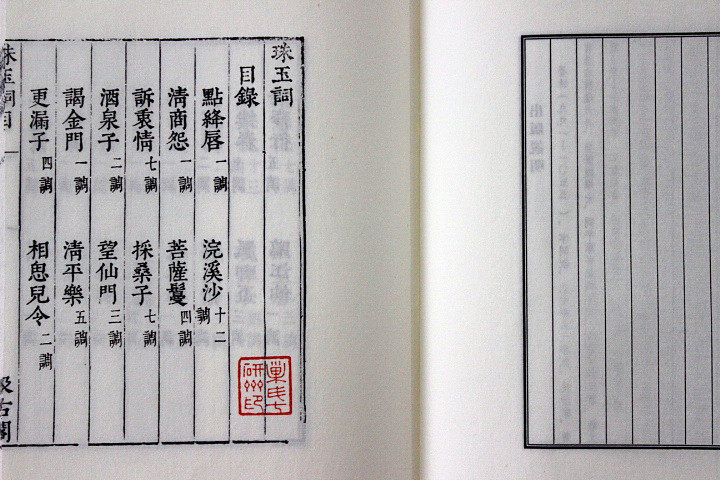 珠玉詞
目錄
點絳唇 一調 浣溪沙 十二調
清商怨 一調 菩薩蠻 四調
訴衷情 七調 採桑子 七調
酒泉子 二調 望仙門 三調
謁金門 一調 清平樂 五調
更漏子 四調 相思兒令 二調
珠玉詞目 一 汲古閣